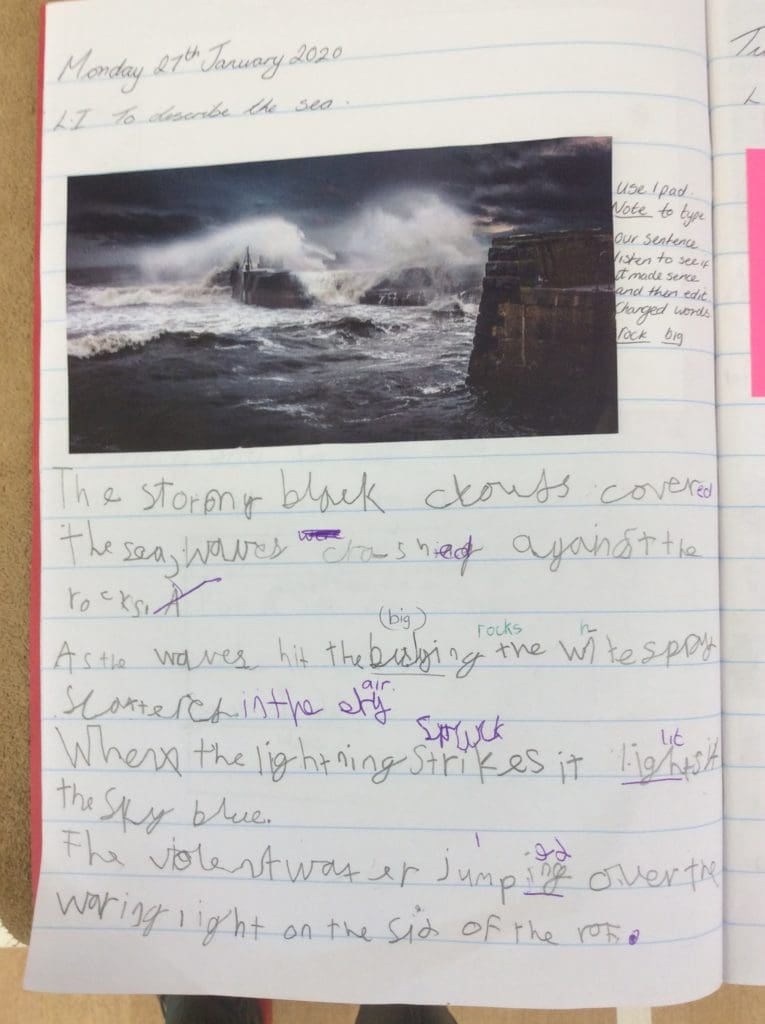 Monday 27th January 2020
L.I To describe the sea.
Use Ipad.
Note to type
our sentence
listen to see if
it made sence
and then edit.
Changed words
rock big
The stormy black clouds covered
the sea, waves crashed against the
rocks. A
(big)
rocks h
As the waves hit the the wite spray
air.
scattered in the sky
Struck lit
When the lightning strikes it lights it
the sky blue.
ed
The violent water jumping over the
waring light on the sid of the
Tu
L